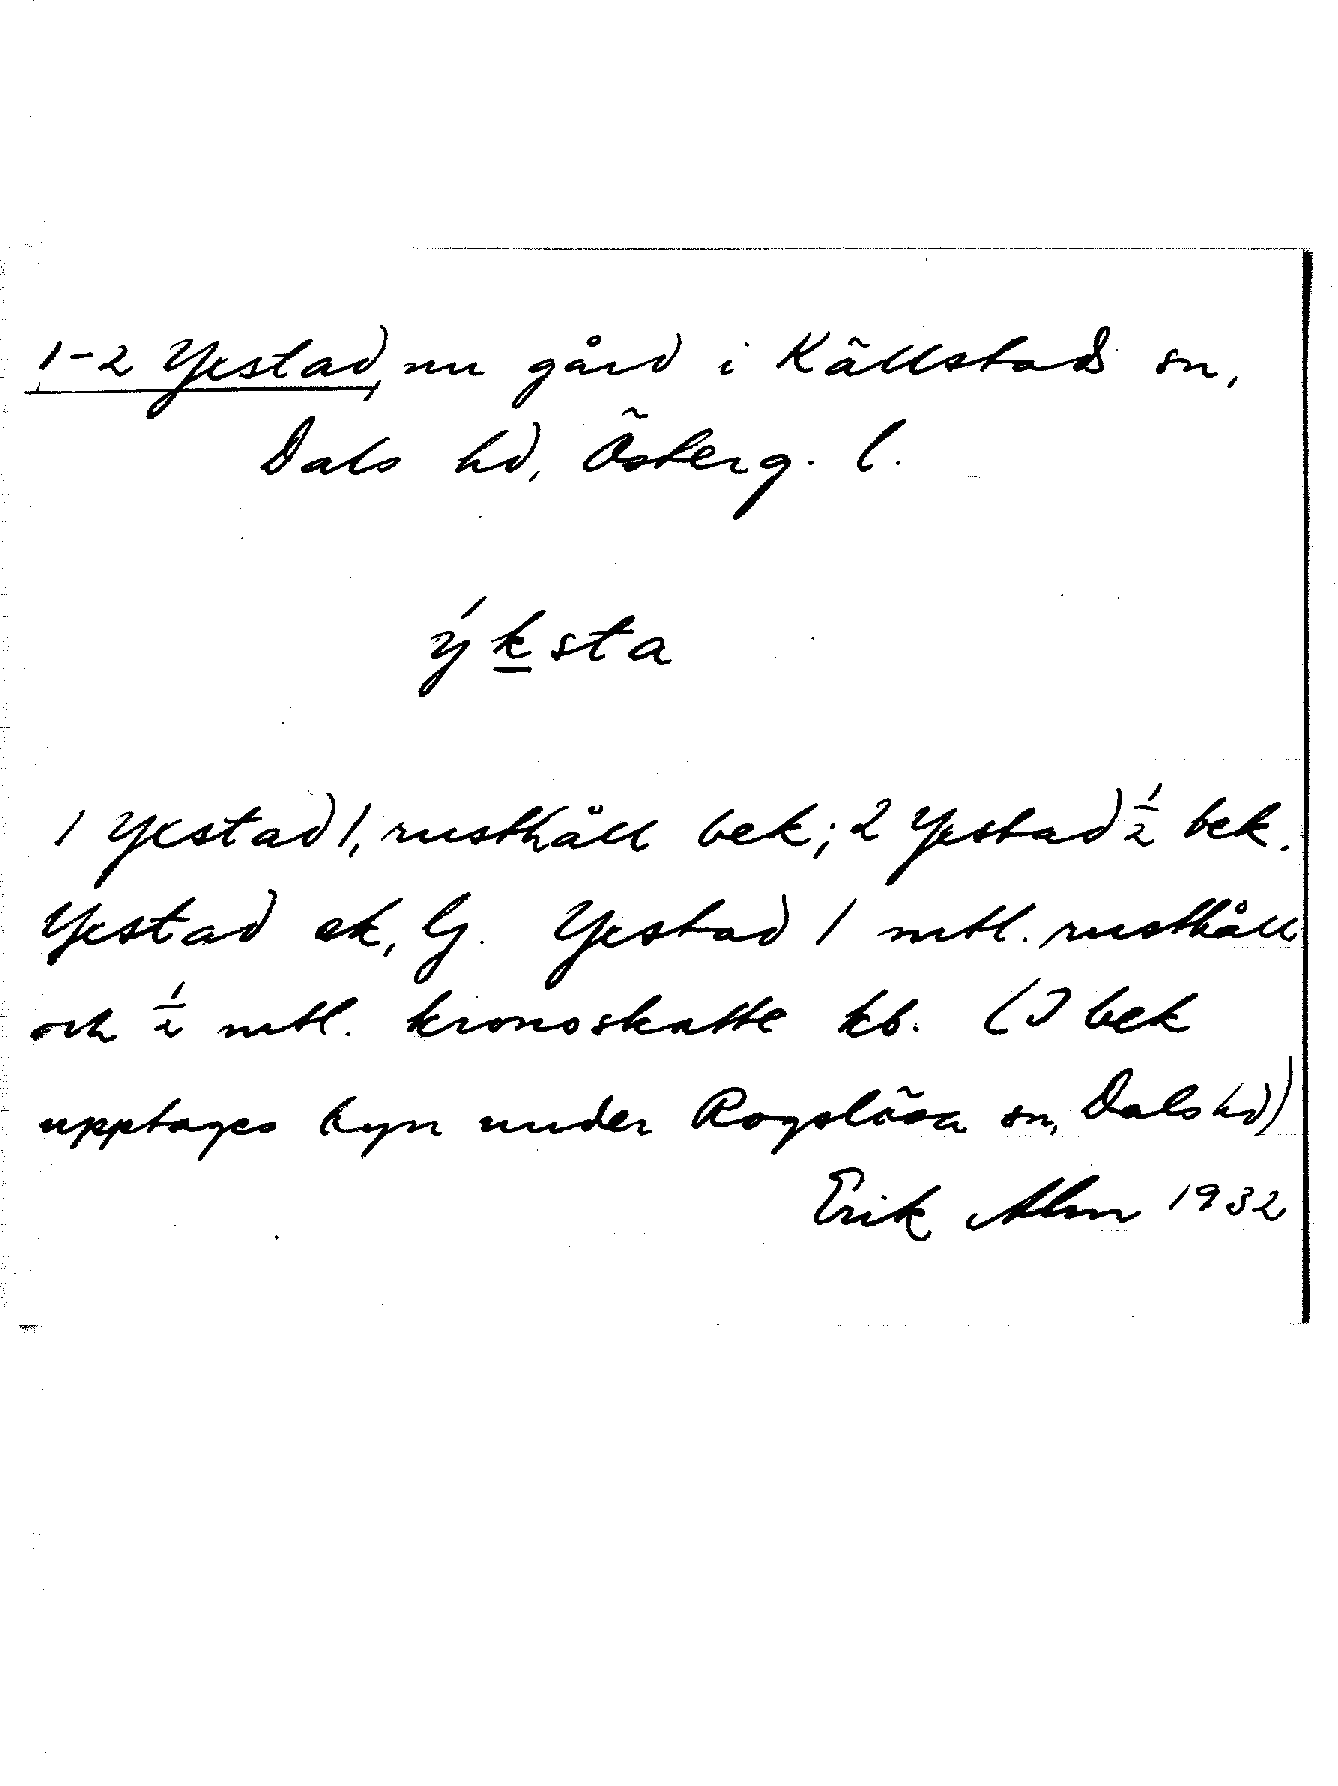 1-2 Yxstad, nu gård i Källstads sn,
Dals hd, Österg. l.
ýksta
1 Yxstad 1, rusthåll bek; 2 Yxstad ½ bek.
Yxstad ek, Gj. Yxstad 1 mtl. rusthåll
och ½ mtl. kronoskatte kb. (I bek
upptages byn under Rogslösa sn, Dals hd)
Erik Alm 1932